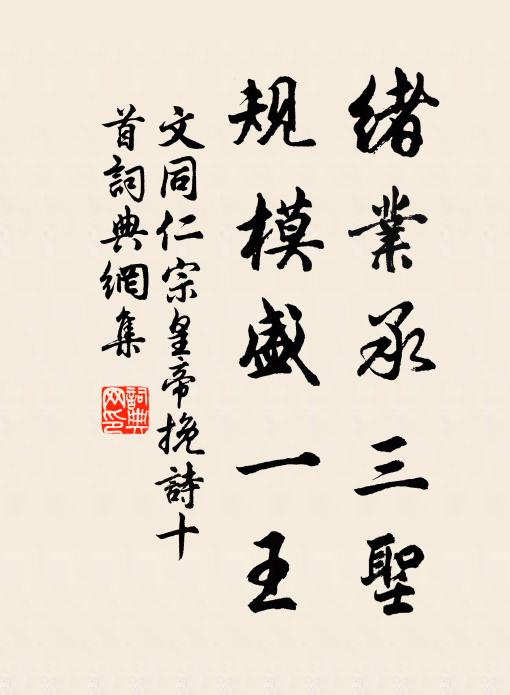 緒業承三聖
規模盛一王
文同仁宗皇帝挽詩十
首詞典網集
詞典網印